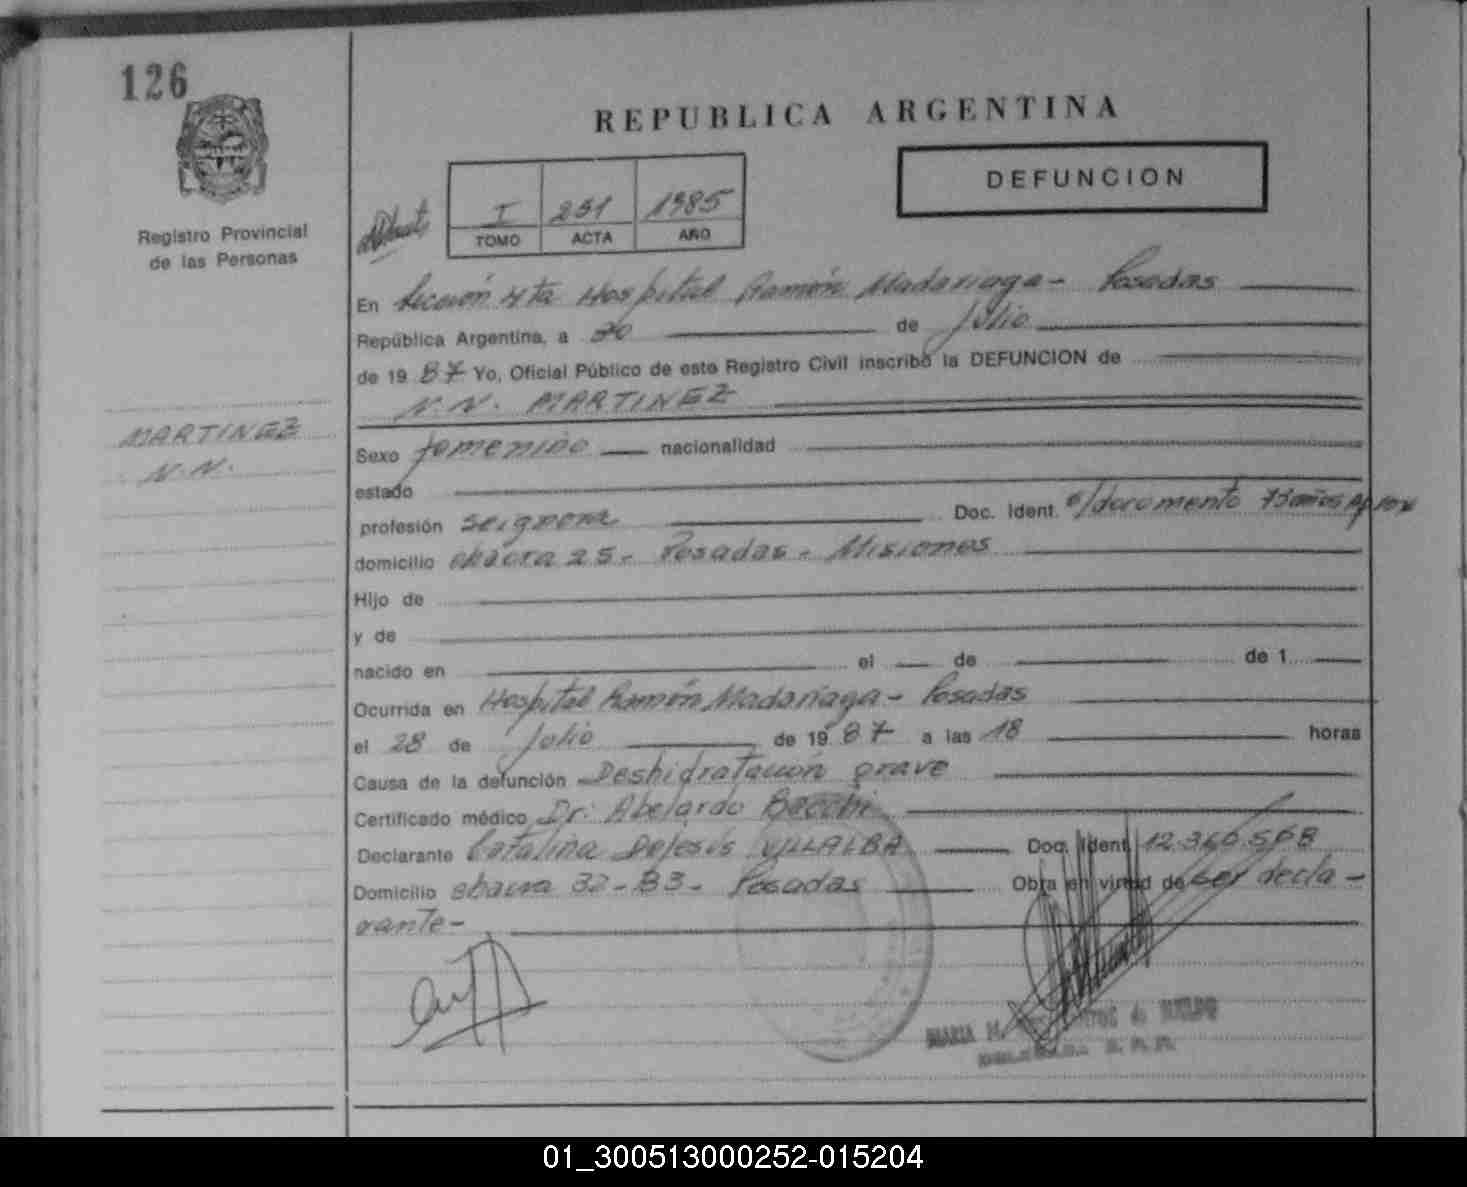 126
REPUBLICA ARGENTINA
DEFUNCION
Registro Provincial
de las Personas
I 251 1985
TOMO ACTA AÑO
En Sección 4ta Hospital Ramón Madariaga - Posadas
República Argentina, a 30 de Julio
de 19 87 Yo, Oficial Público de este Registro Civil inscribo la DEFUNCION de
N.N. MARTINEZ
MARTINEZ
N.N.
Sexo femenino nacionalidad
estado
profesión Doc. Ident. s/documento 73 años Aprox
domicilio chacra 25 - Posadas - Misiones
Hijo de
y de
nacido en el de de 1
Ocurrida en Hospital Ramón Madariaga - Posadas
el 28 de Julio de 19 87 a las 18 horas
Causa de la defunción Deshidratación grave
Certificado médico Dr. Abelardo Bacchi
Declarante Catalina Dejesús VILLALBA Doc. Ident. 12.360.568
Domicilio chacra 32-33 - Posadas Obra en virtud de ser decla-
rante-
MARIA
01_300513000252-015204